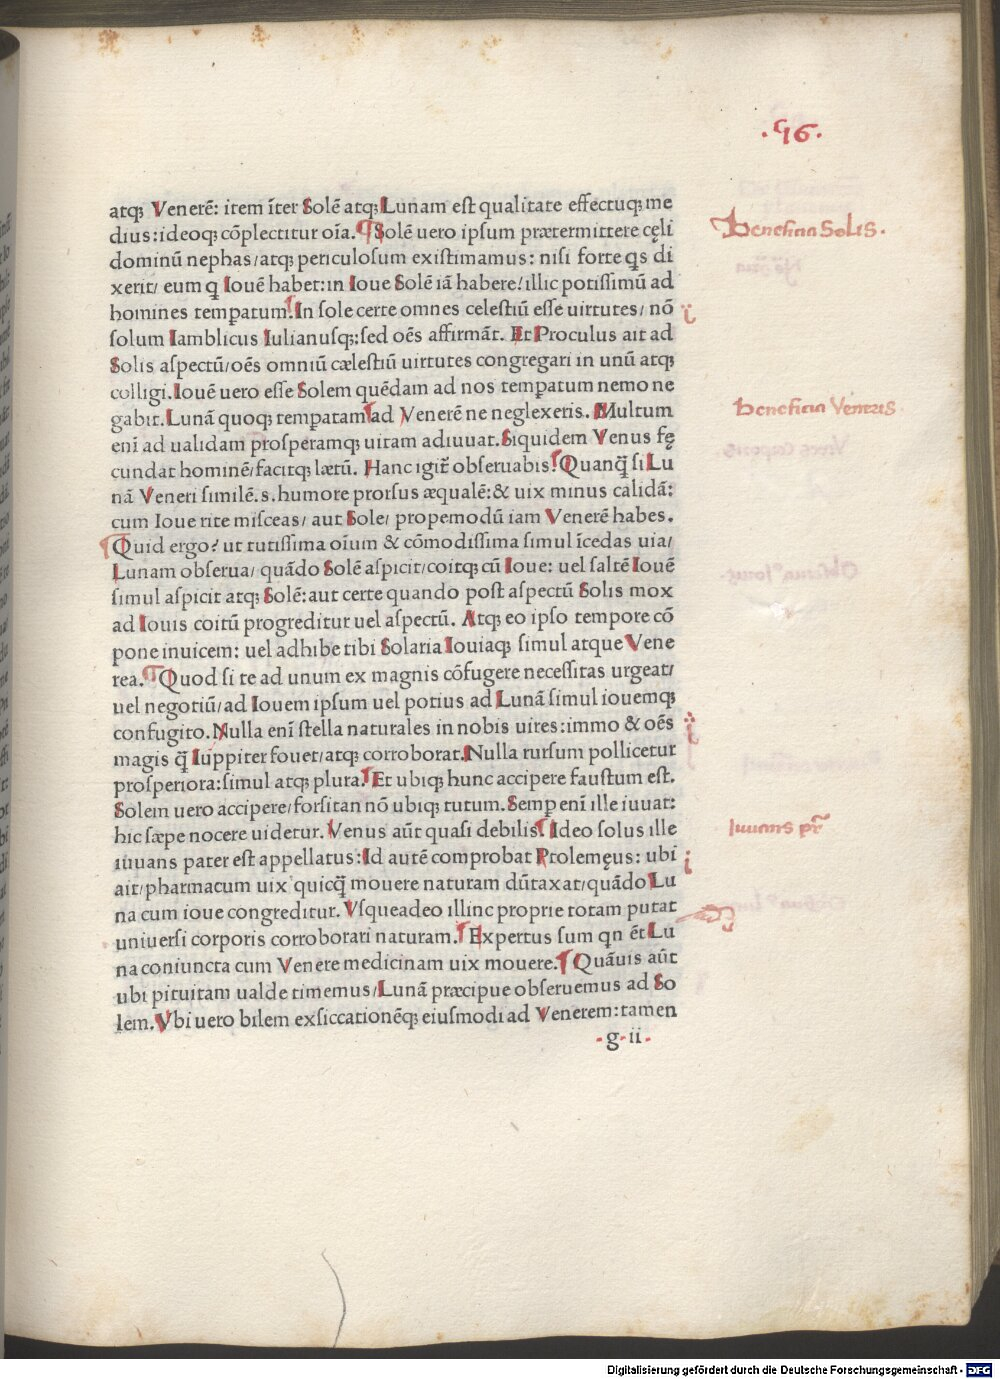 .56.
atq; Venerē: item īter Solē atq; Lunam est qualitate effectuq; me
dius: ideoq; cōplectitur oīa. Solē uero ipsum prætermittere cęli
dominū nephas/atq; periculosum existimamus: nisi forte qs di
xerit/ eum q Iouē habet: in Ioue Solē iā habere/ illic potissimū ad
homines temperatum. In sole certe omnes celestiū esse uirtutes/ nō
solum Iamblicus Iulianusq;: sed oēs affirmāt. Et Proculus ait ad
Solis aspectū/ oēs omniū cælestiū uirtutes congregari in unū atq;
colligi. Iouē uero esse Solem quēdam ad nos temꝑatum nemo ne
gabit. Lunā quoq; temꝑatam ad Venerē ne neglexeris. Multum
enī ad ualidam prosperamq; uitam adiuuat. Siquidem Venus fę
cundat hominē/ facitq; lætū. Hanc igit̄ obseruabis. Quanq̄ si Lu
nā Veneri similē.s. humore prorsus æqualē: & uix minus calidā:
cum Ioue rite misceas/ aut Sole/ propemodū iam Venerē habes.
Quid ergo? ut tutissima oīum & cōmodissima simul īcedas uia/
Lunam obserua/ quādo Solē aspicit/ coitq; cū Ioue: uel saltē Iouē
simul aspicit atq; Solē: aut certe quando post aspectū Solis mox
ad Iouis coitū progreditur uel aspectū. Atq; eo ipso tempore cō
pone inuicem: uel adhibe tibi Solaria Iouiaq; simul atque Vene
rea. Quod si te ad unum ex magnis cōfugere necessitas urgeat/
uel negotiū/ ad Iouem ipsum uel potius ad Lunā simul iouemq;
confugito. Nulla enī stella naturales in nobis uires: immo & oēs
magis q̄ Iuppiter fouet/ atq; corroborat. Nulla rursum pollicetur
prosperiora: simul atq; plura. Et ubiq; hunc accipere faustum est.
Solem uero accipere/ forsitan nō ubiq; tutum. Semꝑ enī ille iuuat:
hic sæpe nocere uidetur. Venus aūt quasi debilis. Ideo solus ille
iuuans pater est appellatus: Id autē comprobat Ptolemęus: ubi
ait/ pharmacum uix quicq̄ mouere naturam dūtaxat/ quādo Lu
na cum ioue congreditur. Vsqueadeo illinc proprie totam putat
uniuersi corporis corroborari naturam. Expertus sum qn ēt Lu
na coniuncta cum Venere medicinam uix mouere. Quāuis aūt
ubi pituitam ualde timemus/ Lunā præcipue obseruemus ad So
lem. Vbi uero bilem exsiccationēq; eiusmodi ad Venerem: tamen
g ii
beneficia Solis.
beneficia Veneris
Iuuans pr̄
Digitalisierung gefördert durch die Deutsche Forschungsgemeinschaft - DFG